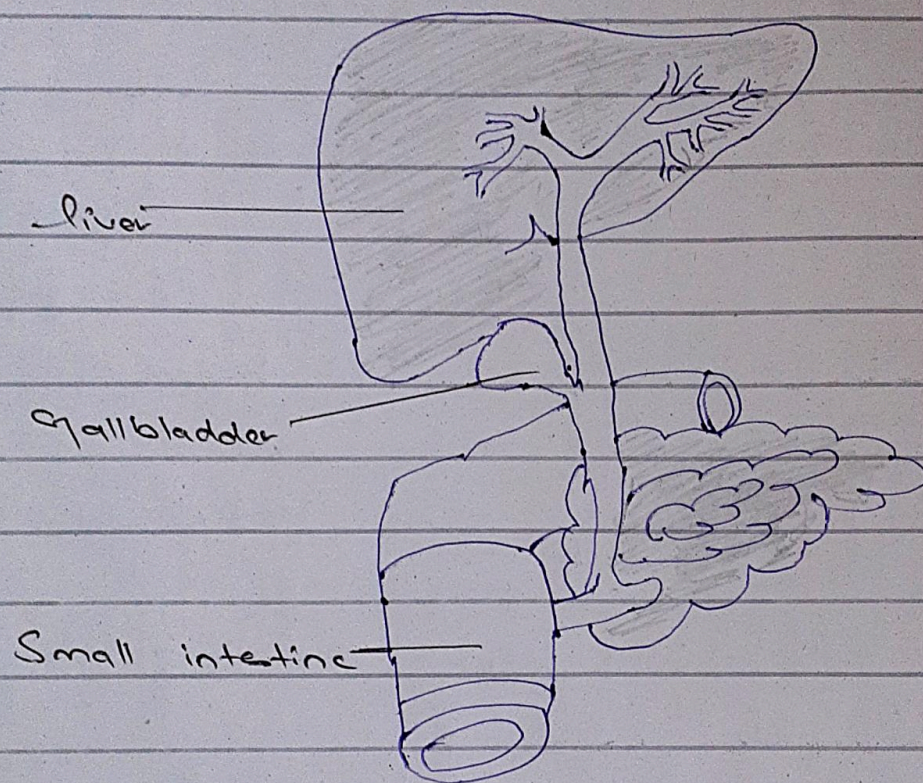 liver
Gallbladder
Small intestine